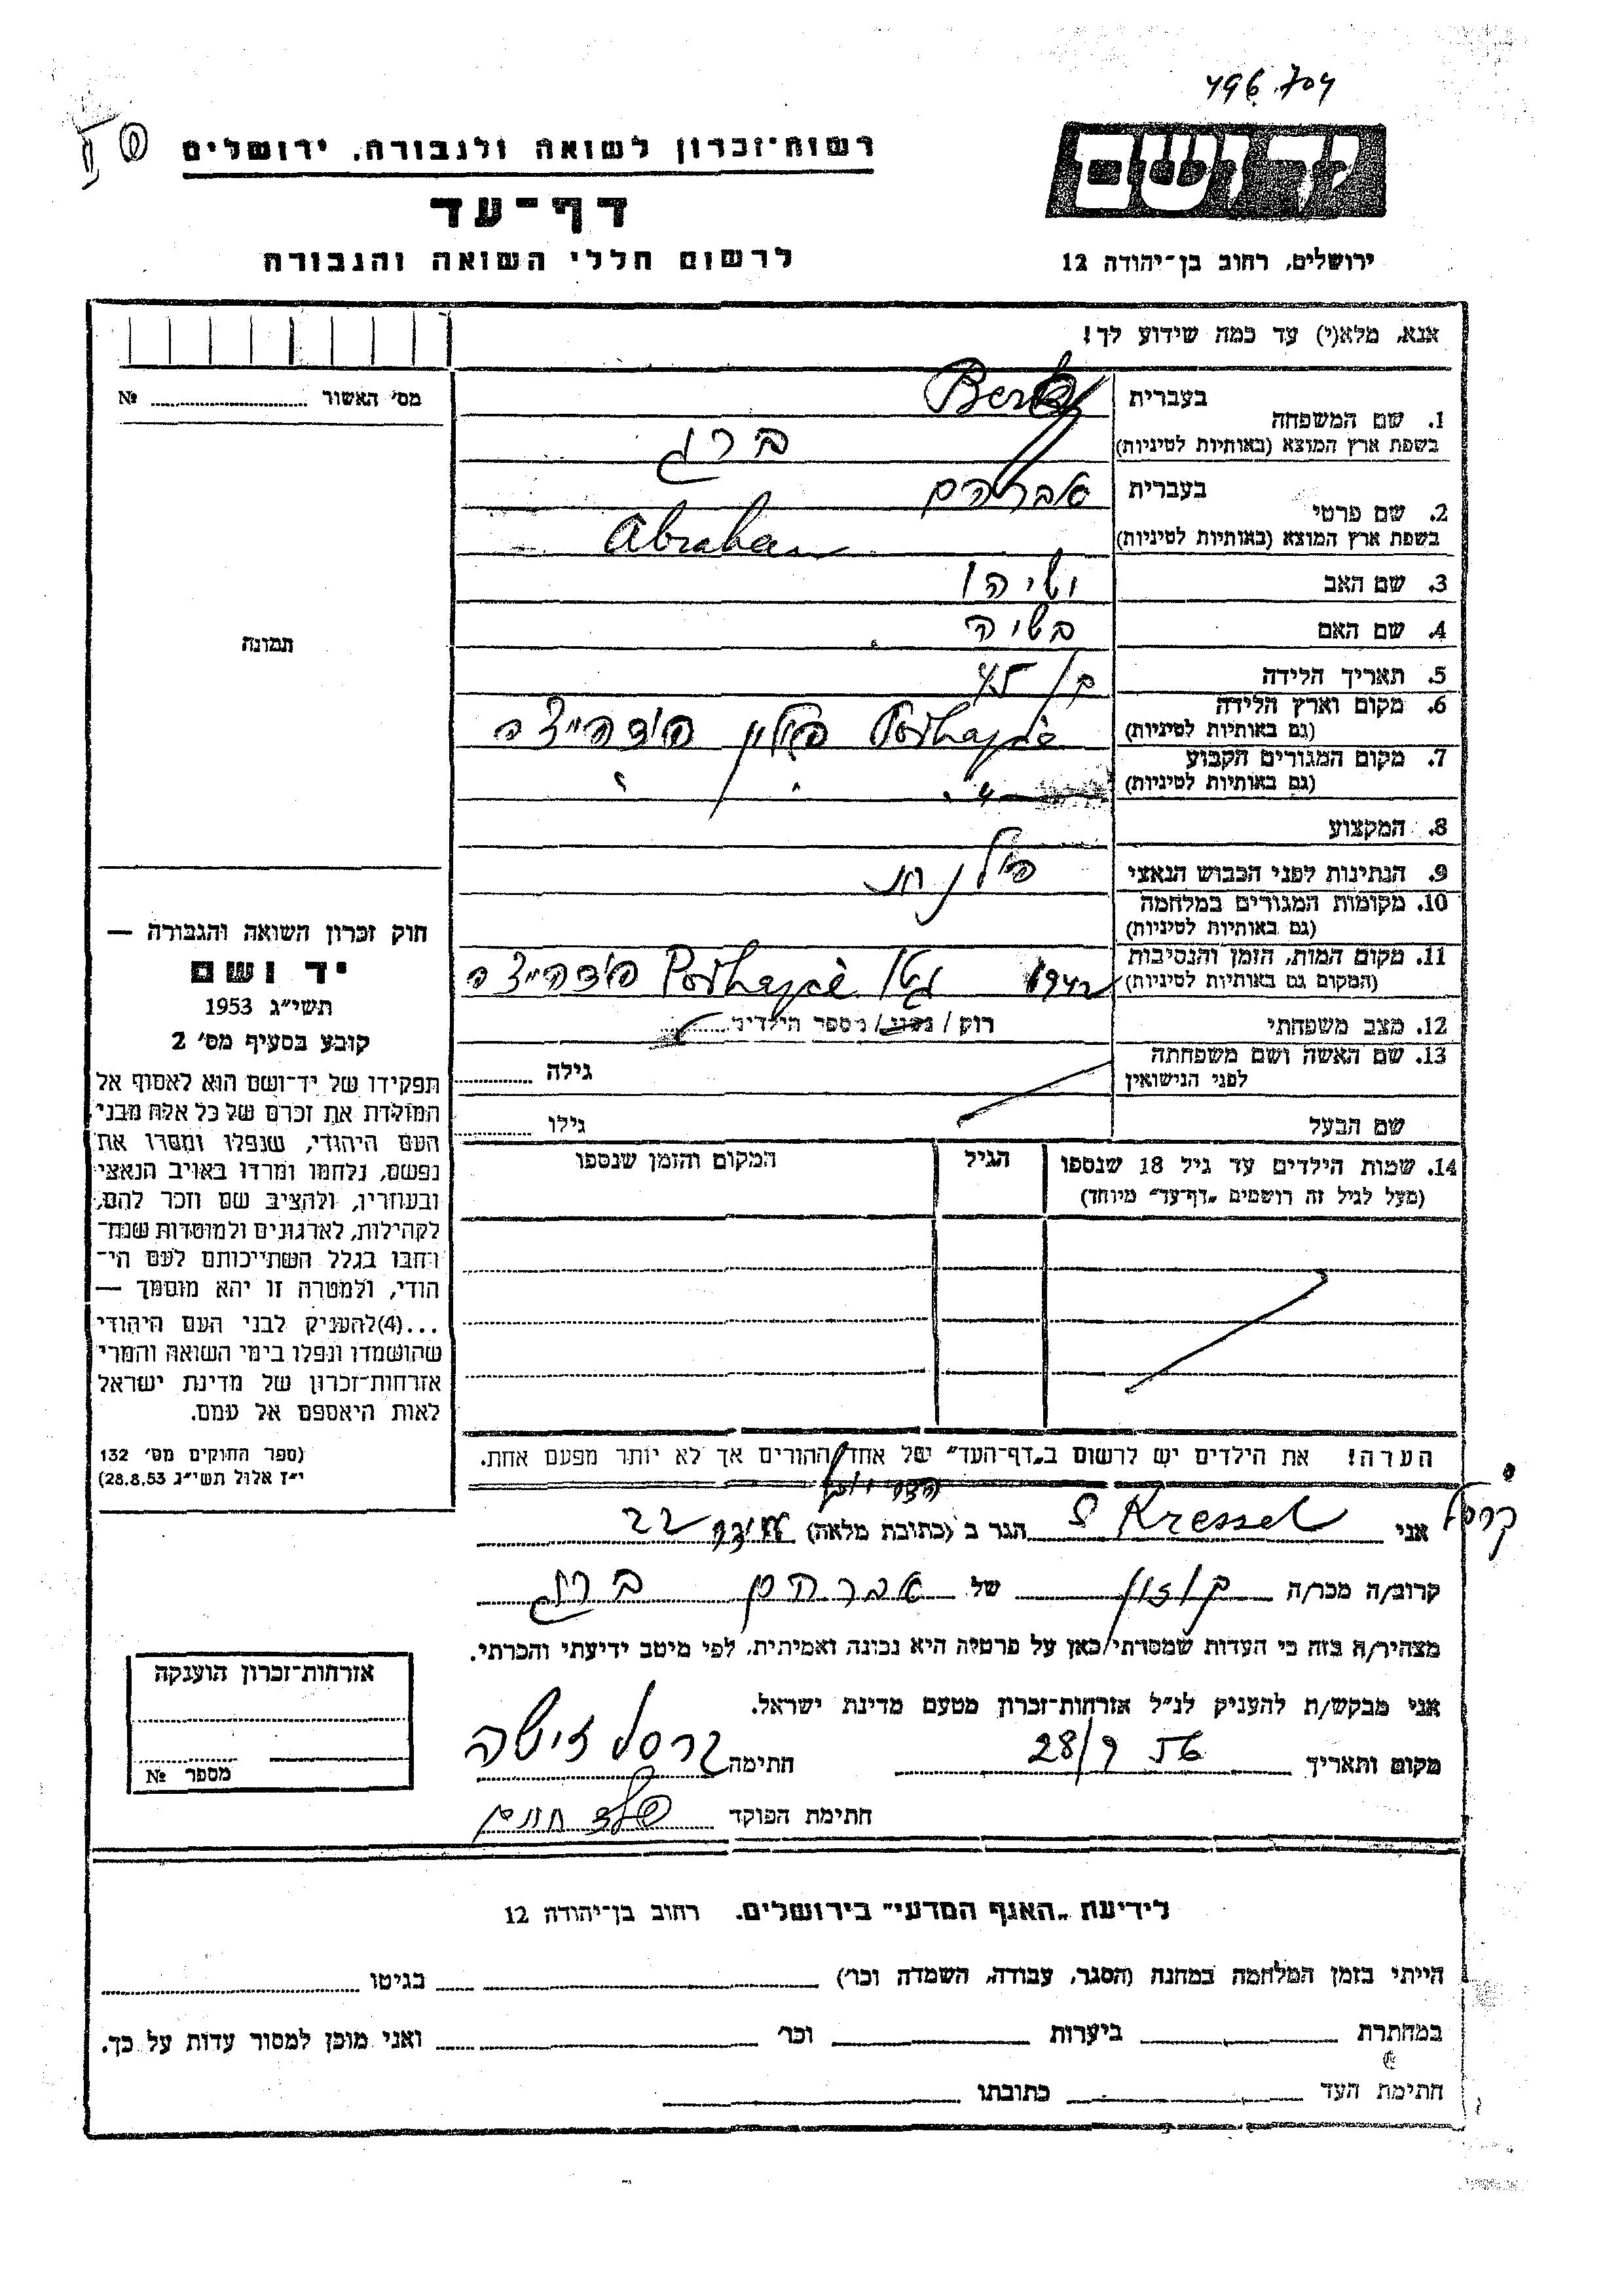 496.704
רשות־זכרון לשואה ולגבורה, ירושלים
דף־עד
לרשום חללי השואה והגבורה
ידושם
ירושלים, רחוב בן־יהודה 12
אנא, מלא(י) עד כמה שידוע לך!
מס׳ האשור № 
תמונה
1. שם המשפחה
בעברית
Berg
בשפת ארץ המוצא (באותיות לטיניות)
ברג
2. שם פרטי
בעברית
אברהם
בשפת ארץ המוצא (באותיות לטיניות)
Abraham
3. שם האב
4. שם האם
בשיה
5. תאריך הלידה
בן 45
6. מקום וארץ הלידה
(גם באותיות לטיניות)
Podhajce פולין פודהייצה
7. מקום המגורים הקבוע
(גם באותיות לטיניות)
8. המקצוע
9. הנתינות לפני הכבוש הנאצי
פולנית
10. מקומות המגורים במלחמה
(גם באותיות לטיניות)
11. מקום המות, הזמן והנסיבות
(המקום גם באותיות לטיניות)
1942 גטו Podhajce פודהייצה
12. מצב משפחתי
רוק / נשוי / מספר הילדים
13. שם האשה ושם משפחתה
לפני הנישואין
גילה
שם הבעל
גילו
14. שמות הילדים עד גיל 18 שנספו
(מעל לגיל זה רושמים „דף־עד״ מיוחד)
הגיל
המקום והזמן שנספו
הערה! את הילדים יש לרשום ב„דף־העד״ של אחד ההורים אך לא יותר מפעם אחת.
חוק זכרון השואה והגבורה —
יד ושם
תשי״ג 1953
קובע בסעיף מס׳ 2
תפקידו של יד־ושם הוא לאסוף אל
המולדת את זכרם של כל אלה מבני
העם היהודי, שנפלו ומסרו את
נפשם, נלחמו ומרדו באויב הנאצי
ובעוזריו, ולהציב שם וזכר להם,
לקהילות, לארגונים ולמוסדות שנח־
רבו בגלל השתייכותם לעם הי־
הודי, ולמטרה זו יהא מוסמך —
...(4)להעניק לבני העם היהודי
שהושמדו ונפלו בימי השואה והמרי
אזרחות־זכרון של מדינת ישראל
לאות היאספם אל עמם.
(ספר החוקים מס׳ 132
י״ז אלול תשי״ג 28.8.53)
קרסל
אני S Kressel הגר ב (כתובת מלאה) 22
קרוב/ה מכר/ה קוזין של אברהם ברג
מצהיר/ה בזה כי העדות שמסרתי כאן על פרטיה היא נכונה ואמיתית, לפי מיטב ידיעתי והכרתי.
אני מבקש/ת להעניק לנ״ל אזרחות־זכרון מטעם מדינת ישראל.
מקום ותאריך 28/9 56 חתימה קרסל
חתימת הפוקד
אזרחות־זכרון הוענקה
מספר №
לידיעת „האגף המדעי״ בירושלים. רחוב בן־יהודה 12
הייתי בזמן המלחמה במחנה (הסגר, עבודה, השמדה וכו׳) בגיטו
במחתרת ביערות וכו׳ ואני מוכן למסור עדות על כך.
חתימת העד כתובתו